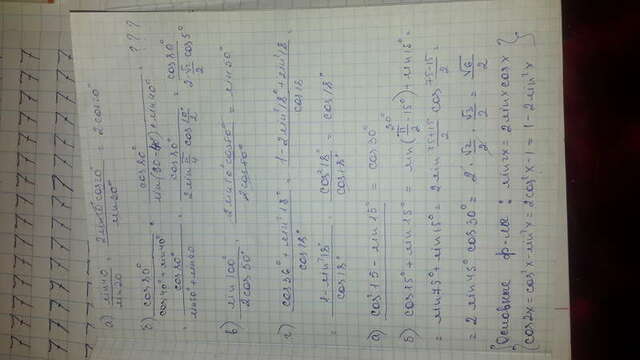 7 7 7 7 7 7 7 7
7 7 7 7 7 7 7 7
а) sin40°/sin20 ; 2sin20°cos20°/sin20° = 2cos20°
б) cos80°/(cos40°+sin40°) ; cos80°/(sin(90-40°)+sin40°) ; ???
cos80°/(sin50°+sin40) ; cos80°/(2sin π/4 cos 10°/2) = cos80°/(2 √2/2 cos5°)
в) sin100°/2cos50° ; 2sin50°cos50°/2cos50° = sin50°
г) (cos36°+sin²18°)/cos18° = (1-2sin²18°+sin²18°)/cos18 =
= (1-sin²18°)/cos18° = cos²18°/cos18° = cos18°
а) cos²15-sin²15° = cos30°
б) cos15°+sin15° = sin(π/2-15°)+sin15° =
= sin75°+sin15° = 2sin (75+15)/2 cos (75-15)/2 =
= 2 sin45° cos30° = 2·√2/2·√3/2 = √6/2
Основные ф-лы: sin2x = 2sinxcosx
cos2x = cos²x-sin²x = 2cos²x-1 = 1-2sin²x